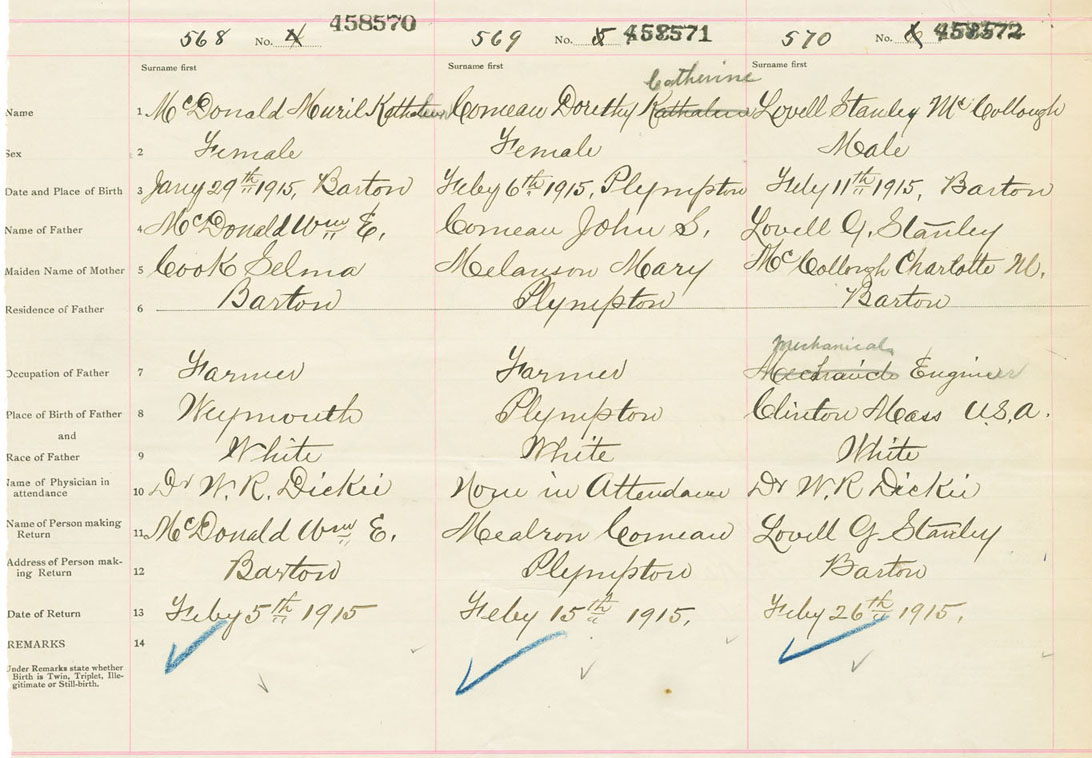 568 No. 4 458570 569 No. 5 458571 570 No. 6 458572
Surname first Surname first Surname first
Catherine
Name 1 McDonald Muril Kathaleen Comeau Dorethy Kathaleen Lovell Stanley McCollough
Sex 2 Female Female Male
Date and Place of Birth 3 Jany 29th 1915, Barton Feby 6th 1915, Plympton Feby 11th 1915, Barton
Name of Father 4 McDonald Wm E. Comeau John S. Lovell G. Stanley
Maiden Name of Mother 5 Cook Selma Melanson Mary McCollough Charlotte M.
Residence of Father 6 Barton Plympton Barton
Mechanical
Occupation of Father 7 Farmer Farmer Engineer
Place of Birth of Father 8 Weymouth Plympton Clinton Mass U.S.A.
and
Race of Father 9 White White White
Name of Physician in
attendance 10 Dr W. R. Dickie None in Attendance Dr W. R Dickie
Name of Person making
Return 11 McDonald Wm E. Comeau Lovell G Stanley
Address of Person mak-
ing Return 12 Barton Plympton Barton
Date of Return 13 Feby 5th 1915 Feby 15th 1915, Feby 26th 1915,
REMARKS 14
Under Remarks state whether
Birth is Twin, Triplet, Ille-
gitimate or Still-birth.